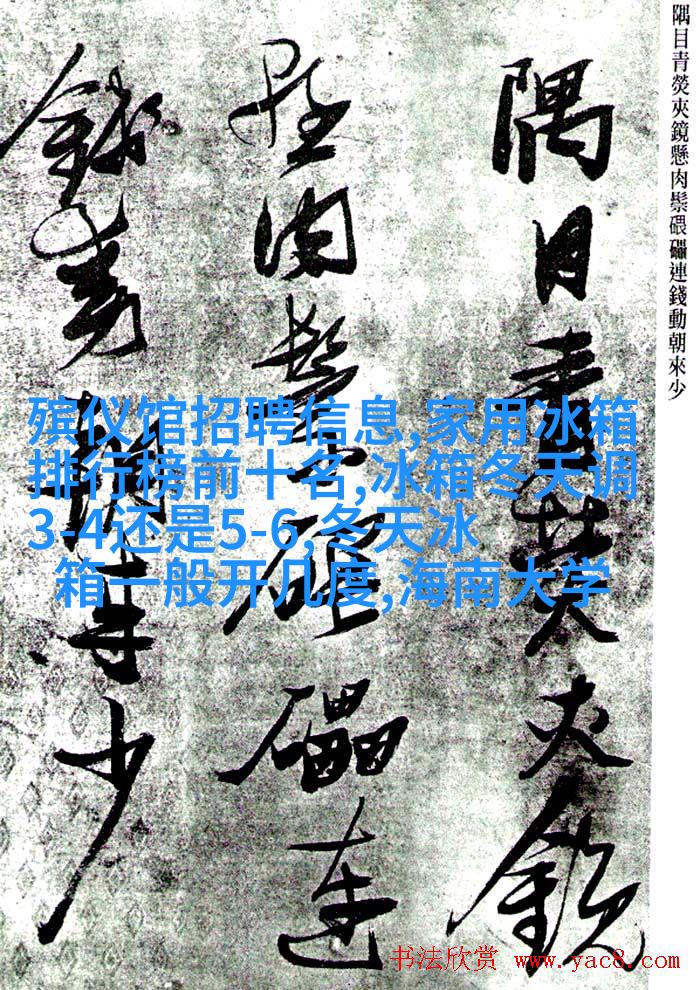 隅目青熒夾鏡懸肉鬃碨礧連錢動朝來少
隅目青熒夾鏡
懸肉鬃碨礧連
錢動朝來少
殡仪馆招聘信息,家用冰箱
排行榜前十名,冰箱冬天调
3-4还是5-6,冬天冰
箱一般开几度,海南大学
书法欣赏 www.yac8.com